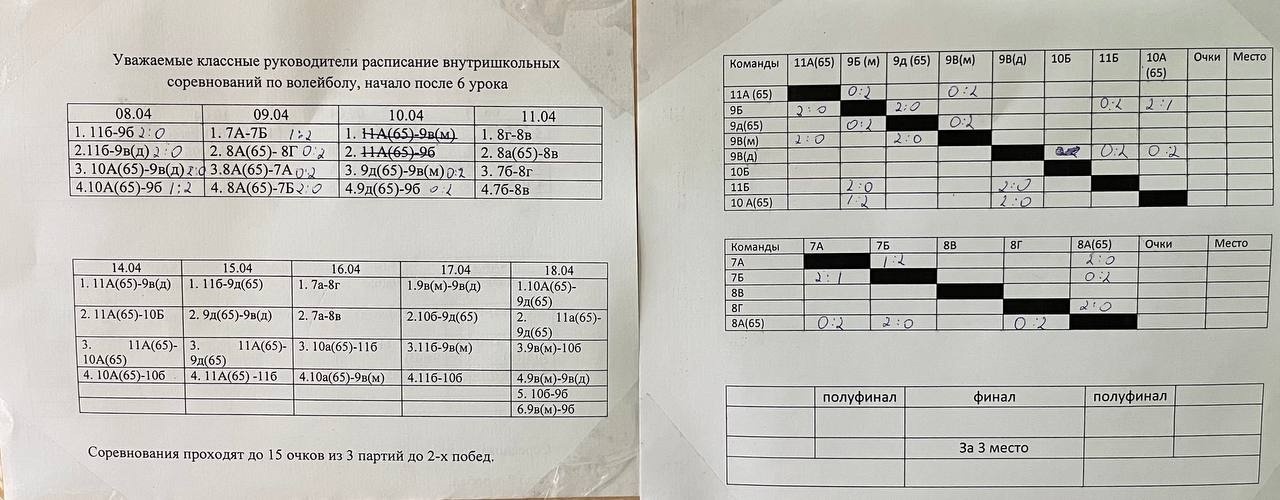 Уважаемые классные руководители расписание внутришкольных
соревнований по волейболу, начало после 6 урока
08.04 09.04 10.04 11.04
1. 11б-9б 2:0 1. 7А-7Б 1:2 1. 11А(65)-9в(м) 1. 8г-8в
2.11б-9в(д) 2:0 2. 8А(65)- 8Г 0:2 2. 11А(65)-9б 2. 8а(65)-8в
3. 10А(65)-9в(д) 2:0 3.8А(65)-7А 0:2 3. 9д(65)-9в(м) 0:2 3. 7б-8г
4.10А(65)-9б 1:2 4. 8А(65)-7Б 2:0 4.9д(65)-9б 0:2 4.7б-8в
14.04 15.04 16.04 17.04 18.04
1. 11А(65)-9в(д) 1. 11б-9д(65) 1. 7а-8г 1.9в(м)-9в(д) 1.10А(65)-
9д(65)
2. 11А(65)-10Б 2. 9д(65)-9в(д) 2. 7а-8в 2.10б-9д(65) 2. 11а(65)-
9д(65)
3. 11А(65)- 3. 11А(65)- 3. 10а(65)-11б 3.11б-9в(м) 3.9в(м)-10б
10А(65) 9д(65)
4. 10А(65)-10б 4. 11А(65) -11б 4.10а(65)-9в(м) 4.11б-10б 4.9в(м)-9в(д)
5. 10б-9б
6.9в(м)-9б
Соревнования проходят до 15 очков из 3 партий до 2-х побед.
Команды 11А(65) 9Б (м) 9д (65) 9В(м) 9В(д) 10Б 11Б 10А Очки Место
(65)
11А (65) 0:2 0:2
9Б 2:0 2:0 0:2 2:1
9д(65) 0:2 0:2
9В(м) 2:0 2:0
9В(д) 0:2 0:2
10Б
11Б 2:0 2:0
10 А(65) 1:2 2:0
Команды 7А 7Б 8В 8Г 8А(65) Очки Место
7А 1:2 2:0
7Б 2:1 0:2
8В
8Г 2:0
8А(65) 0:2 2:0 0:2
полуфинал финал полуфинал
За 3 место